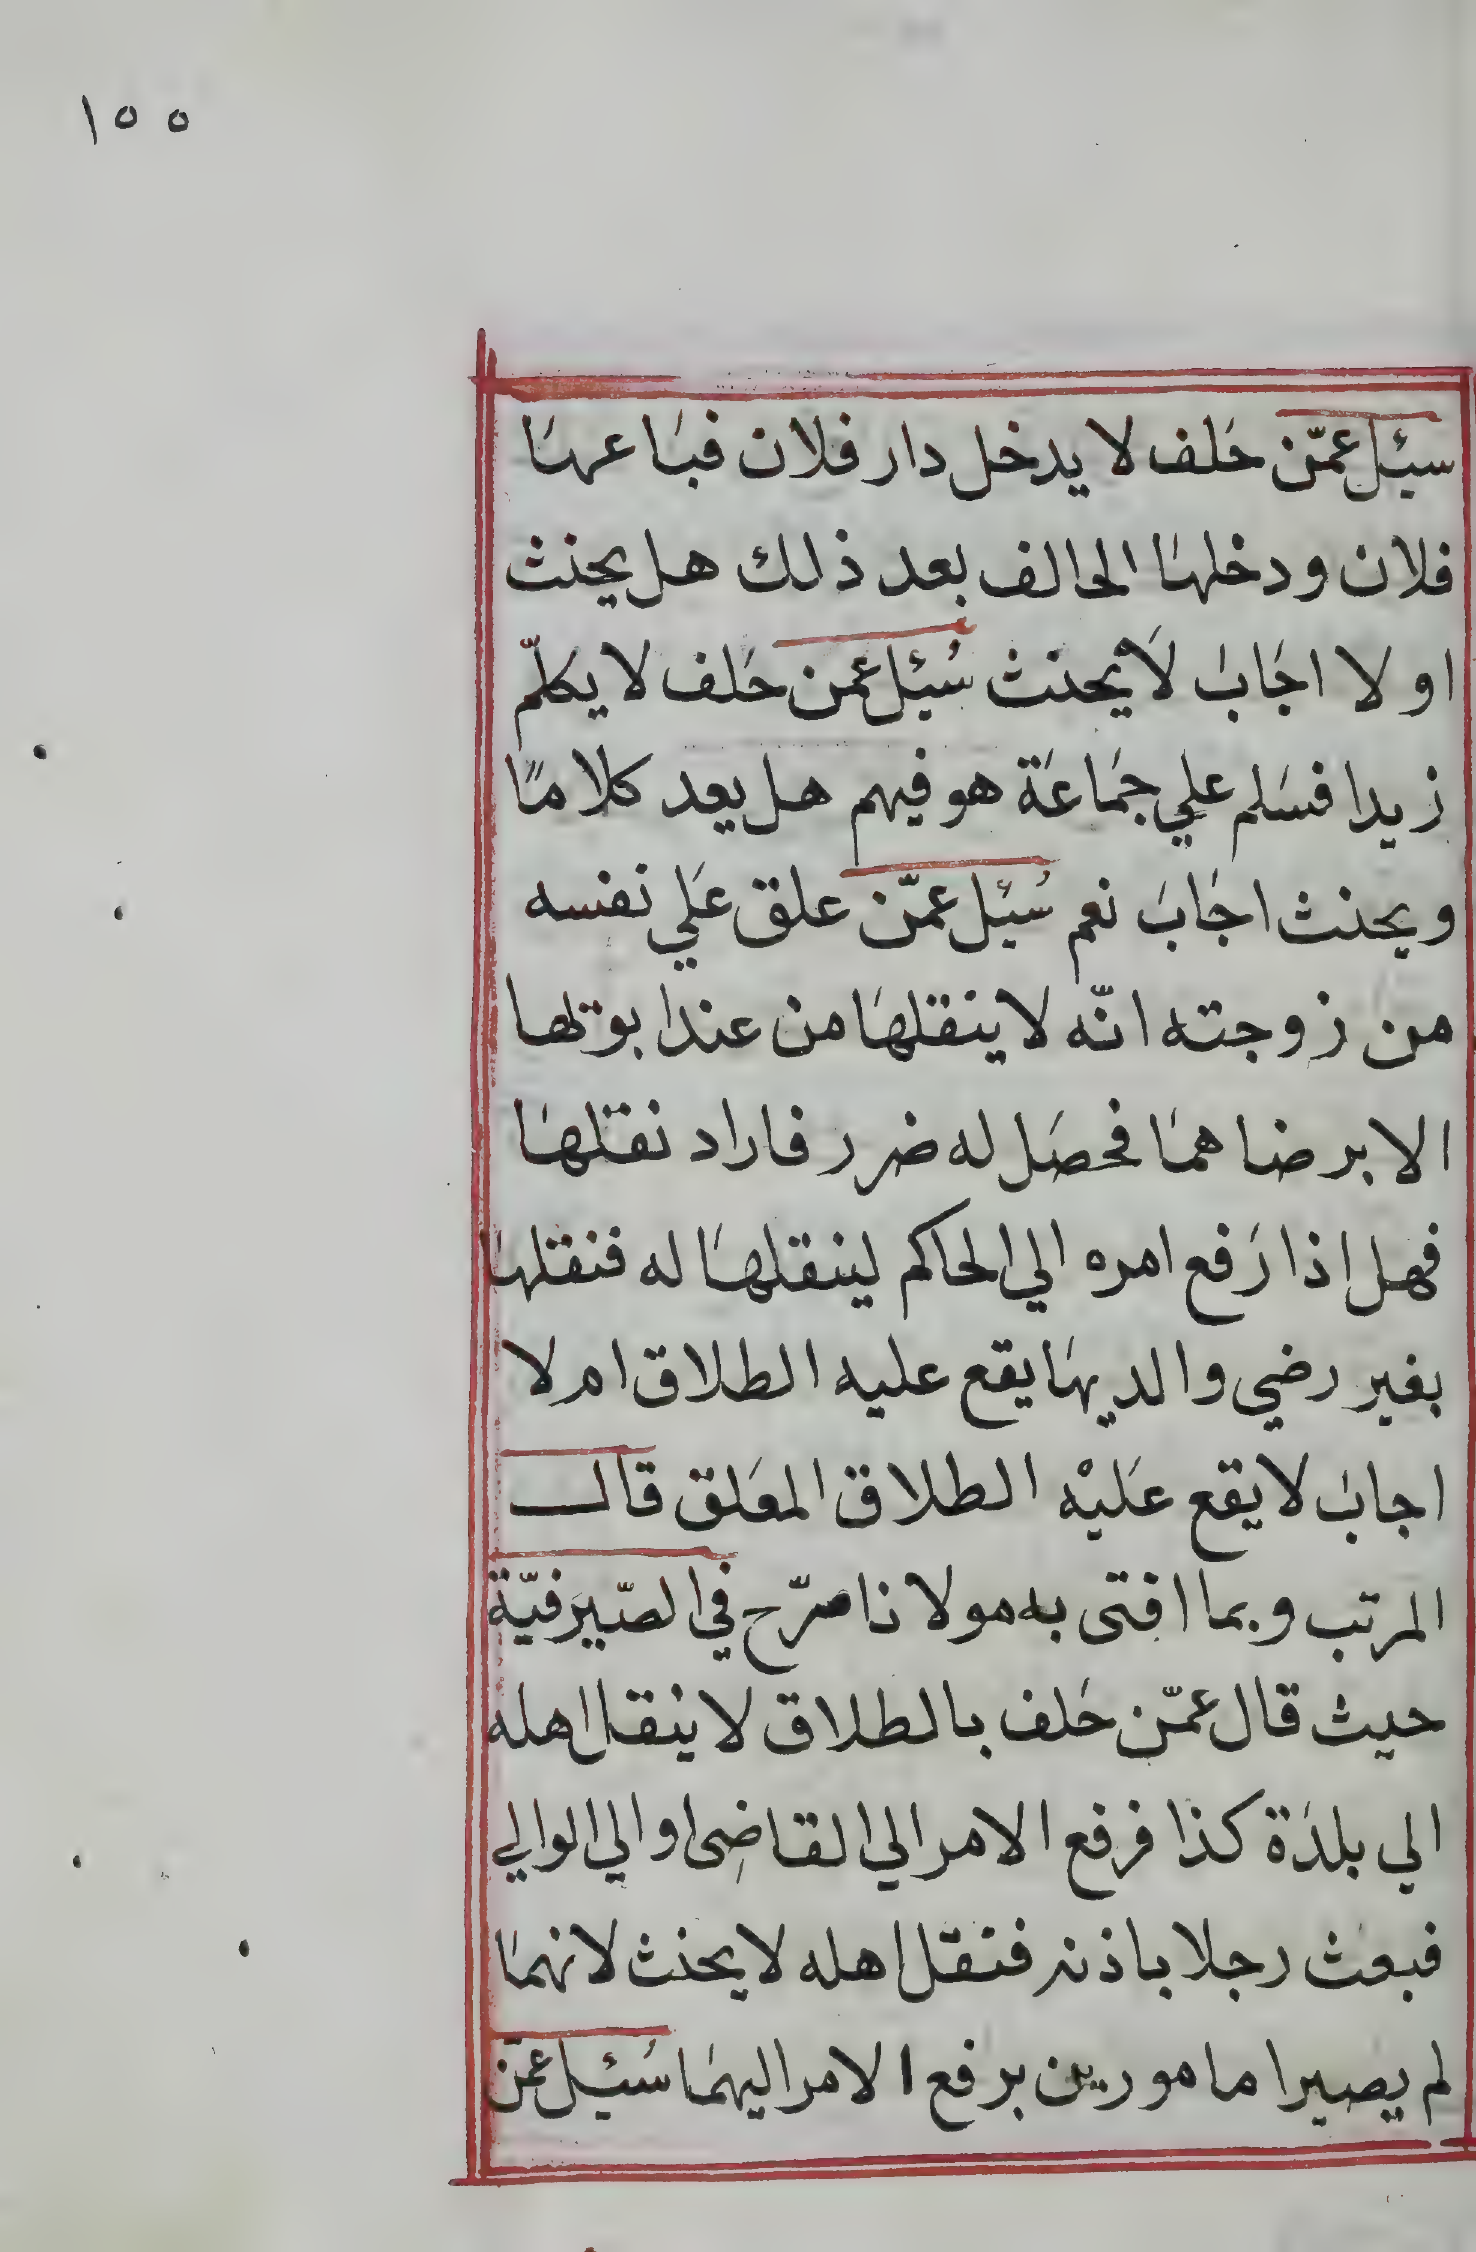 ١٥٥
سئل عمّن حَلف لا يدخل دار فلان فبَاعهَا
فلان ودخلهَا الحالف بعد ذلك هل يحنث
او لا اجَابَ لَا يحنث سُئل عمن حَلف لا يكلّم
زيدا فسَلم علي جمَاعَة هو فيهم هل يعد كلامًا
ويحنث اجَابَ نعم سُئل عمّن علق عَلي نفسه
من زوجته انّه لا ينقلهَا من عند ابوتها
الا برضاهمَا فحصَل له ضرر فاراد نقلهَا
فهل اذا رَفع امره الي الحاكم لينقلهَا له فنقلهَا
بغير رضي والديهَا يقع عليه الطلاق ام لا
اجابَ لا يقع عَليْه الطلاق المعَلق قال
المرتب وبما افتى به مولانا صرّح في الصّيرَفيّة
حيث قال عمّن حَلف بالطلاق لا ينقل اهله
الي بلدَة كذا فرفع الامر الي القاضِى او الي الوالي
فبعث رجلا باذنه فنقل اهله لا يحنث لانهمَا
لم يصيرا مامورين برفع الامر اليهمَا سُئل عمّن